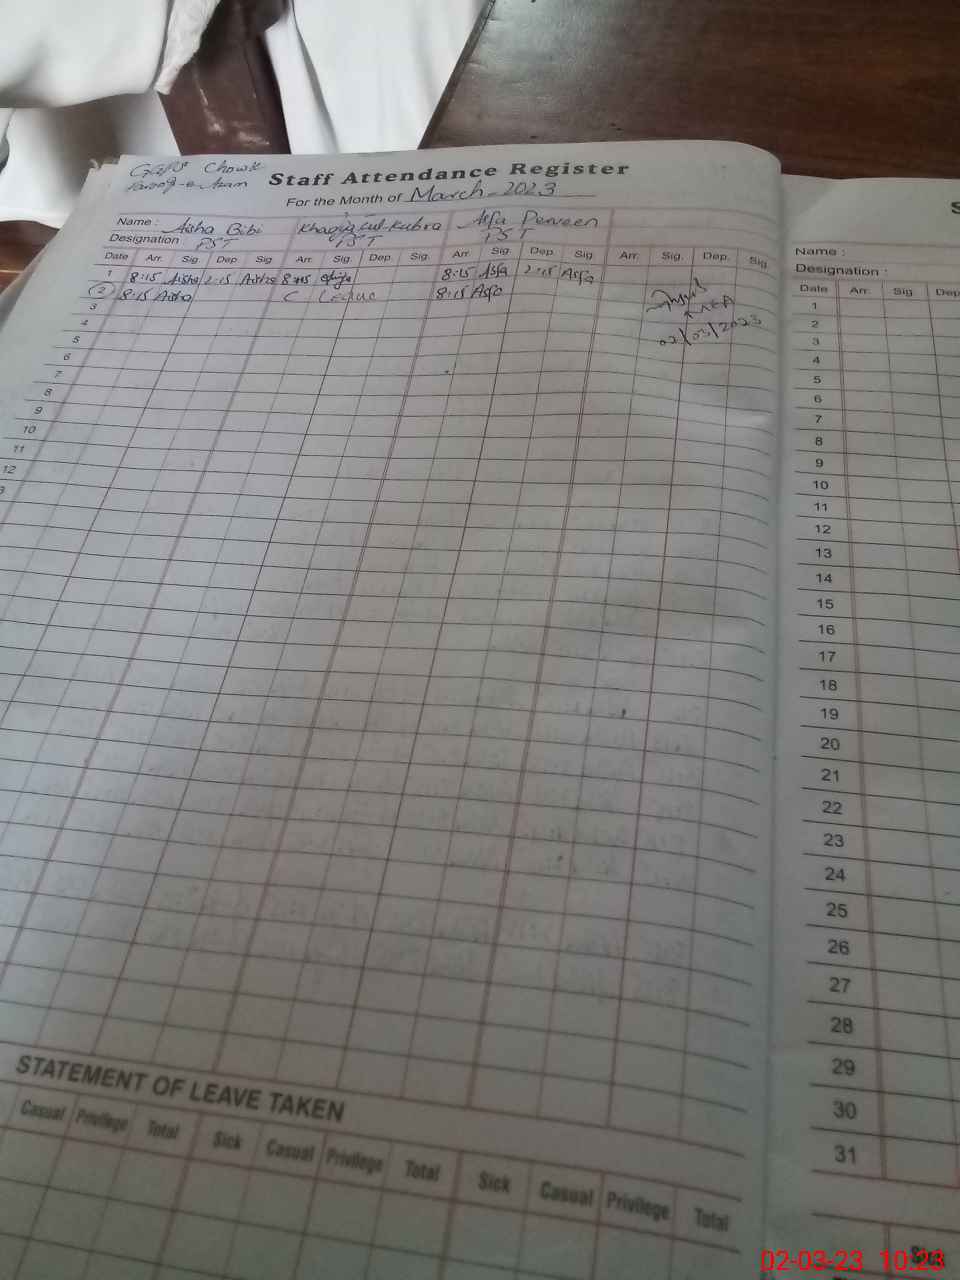 GGPS Chowk
Farooq-e-Azam
Staff Attendance Register
For the Month of March-2023
Name : Aisha Bibi Khadija-tul-Kubra Asfa Perveen
Designation PST PST PST
Date Arr. Sig. Dep. Sig. Arr. Sig. Dep. Sig. Arr. Sig. Dep. Sig. Arr. Sig. Dep. Sig.
1 8:15 Aisha 2:15 Aisha 8:15 2:15 8:15 Asfa 2:15 Asfa
2 8:15 Aisha C Leave 8:15 Asfa
3
MEA
02/03/2023
4
5
6
7
8
9
10
11
12
3
STATEMENT OF LEAVE TAKEN
Casual Privilege Total Sick Casual Privilege Total Sick Casual Privilege Total
S
Name :
Designation :
Date Arr. Sig. Dep
1
2
3
4
5
6
7
8
9
10
11
12
13
14
15
16
17
18
19
20
21
22
23
24
25
26
27
28
29
30
31
02-03-23 10:23